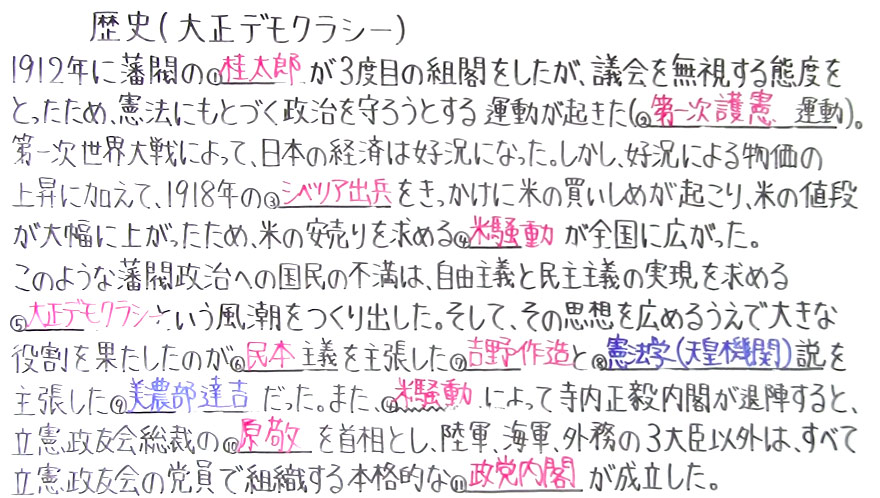 歴史(大正デモクラシー)
1912年に藩閥の①桂太郎が3度目の組閣をしたが、議会を無視する態度を
とったため、憲法にもとづく政治を守ろうとする運動が起きた(②第一次護憲 運動)。
第一次世界大戦によって、日本の経済は好況になった。しかし、好況による物価の
上昇に加えて、1918年の③シベリア出兵をきっかけに米の買いしめが起こり、米の値段
が大幅に上がったため、米の安売りを求める④米騒動が全国に広がった。
このような藩閥政治への国民の不満は、自由主義と民主主義の実現を求める
⑤大正デモクラシーという風潮をつくり出した。そして、その思想を広めるうえで大きな
役割を果たしたのが⑥民本主義を主張した⑦吉野作造と⑧憲法学(天皇機関)説を
主張した⑨美濃部達吉だった。また、④米騒動によって寺内正毅内閣が退陣すると、
立憲政友会総裁の⑩原敬を首相とし、陸軍、海軍、外務の3大臣以外は、すべて
立憲政友会の党員で組織する本格的な⑪政党内閣が成立した。